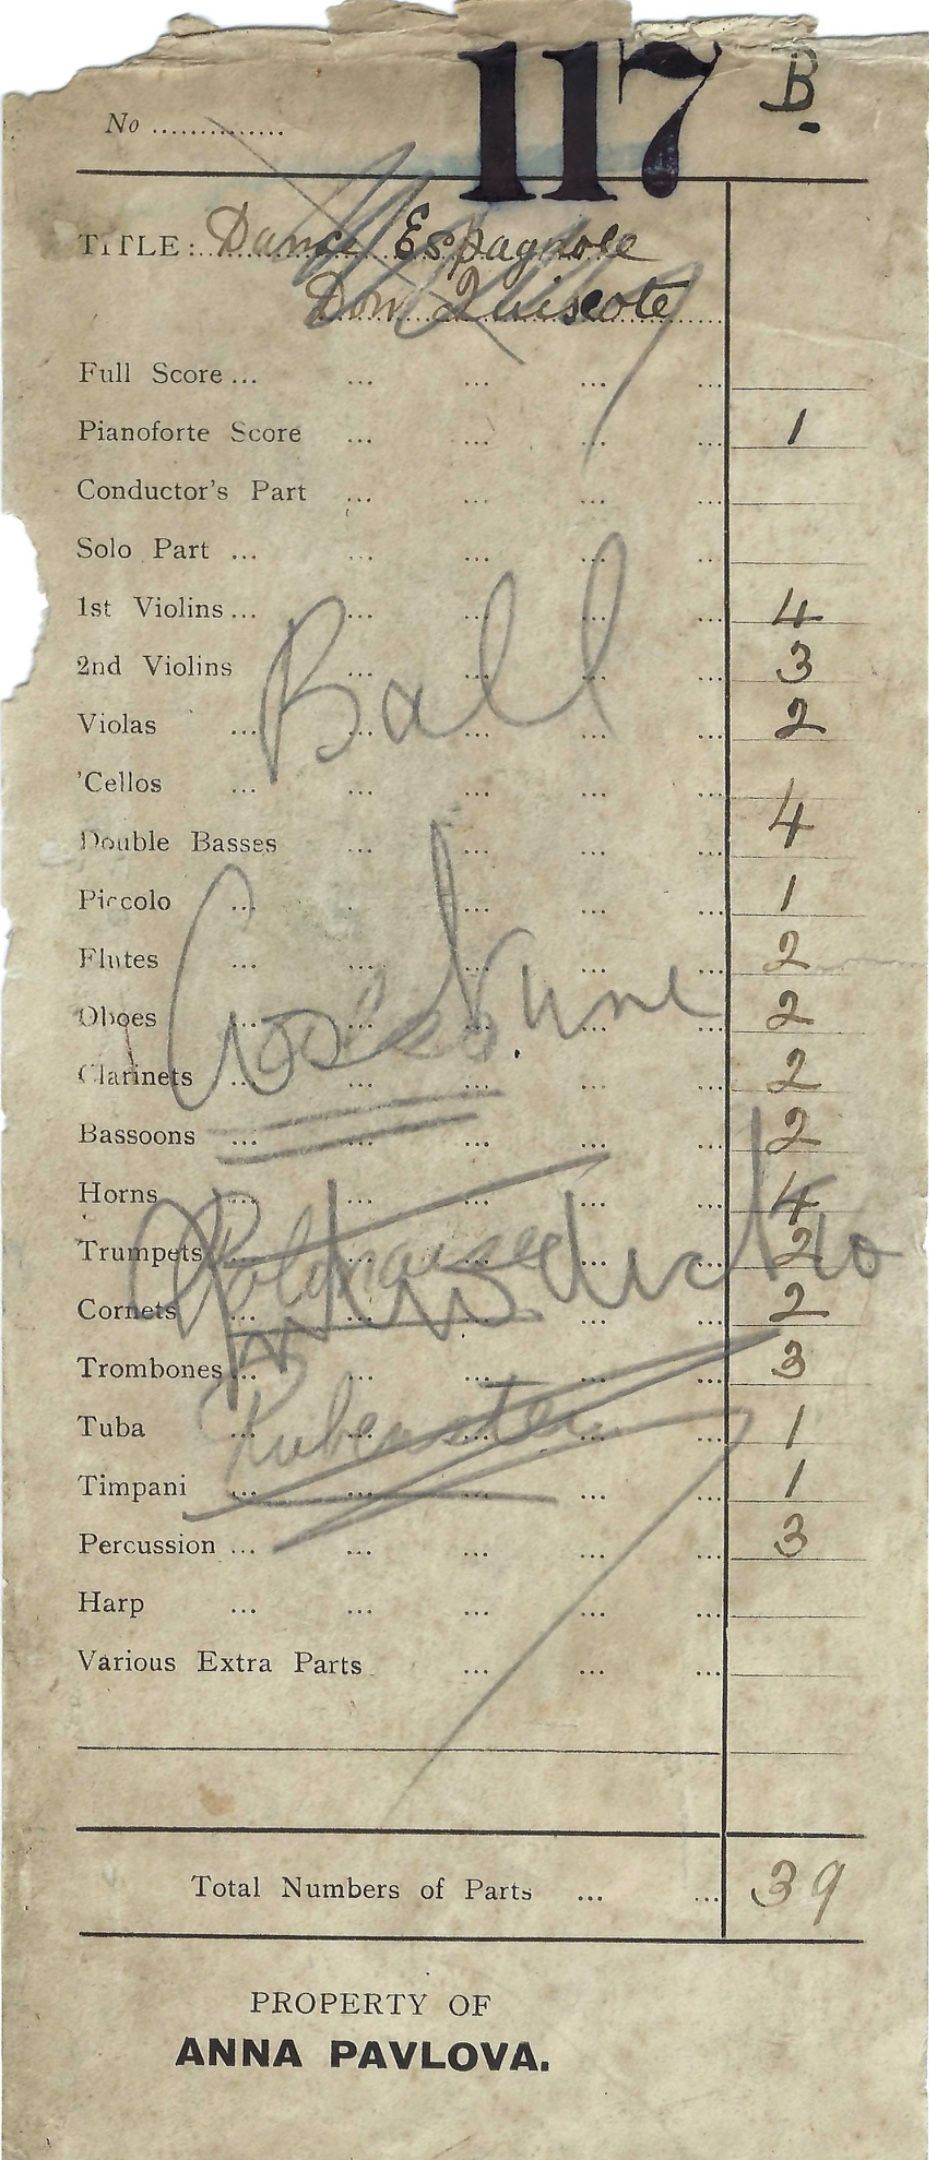 117 B
No ..............
TITLE: Dance Espagnole
Don Quiscote
Full Score ... ... ... ... ...
Pianoforte Score ... ... ... ... 1
Conductor's Part ... ... ... ...
Solo Part ... ... ... ... ...
1st Violins ... ... ... ... ... 4
2nd Violins ... ... ... ... 3
Violas ... ... ... ... ... 2
Ball
'Cellos ... ... ... ... ...
4
Double Basses ... ... ... ...
Piccolo ... ... ... ... ... 1
Flutes ... ... ... ... ... 2
Costume
Oboes ... ... ... ... ... 2
Clarinets ... ... ... ... ... 2
Bassoons ... ... ... ... ... 2
Horns ... ... ... ... ... 4
Trumpets ... ... ... ... ... 2
Introductio
Cornets ... ... ... ... ... 2
Trombones ... ... ... ... ... 3
Tuba ... ... ... ... ... 1
Timpani ... ... ... ... ... 1
Percussion ... ... ... ... ... 3
Harp ... ... ... ... ...
Various Extra Parts ... ... ...
Total Numbers of Parts ... ... 39
PROPERTY OF
ANNA PAVLOVA.